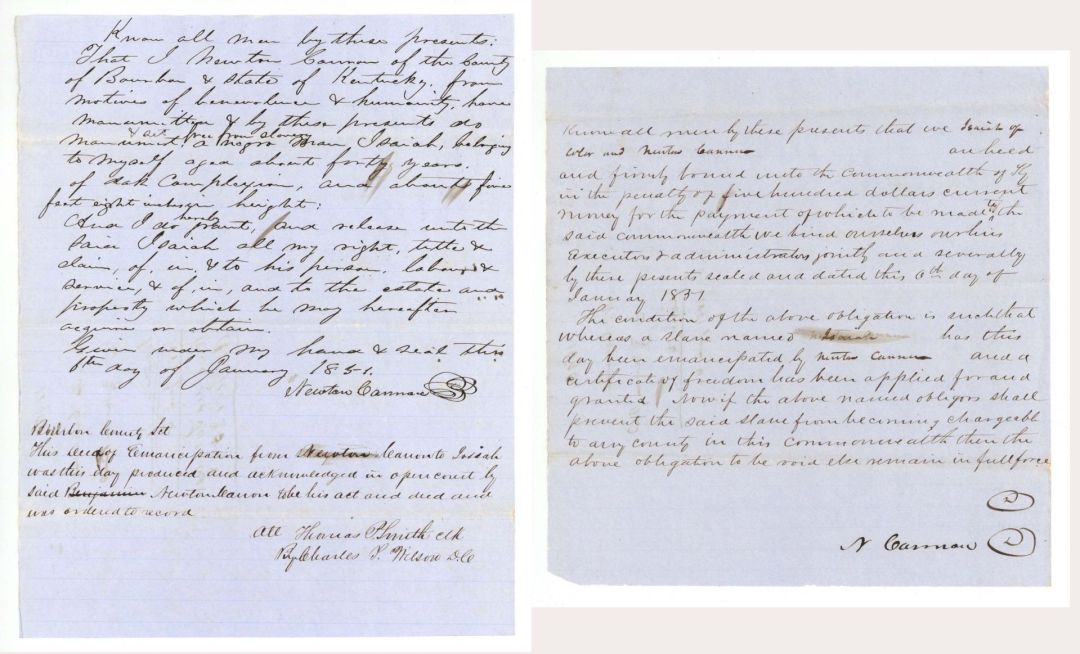 Know all men by these presents:
That I Newton Cannon of the County
of Bourbon & state of Kentucky, from
motives of benevolence & humanity, have
manumitted & by these presents do
& set free from slavery
manumit a negro man, Isaiah, belonging
to myself aged about forty years.
of dak complexion, and about five
feet eight inches height:
hereby
And I do grant, and release unto the
said Isaiah all my right, title &
claim, of, in, & to his person, labour &
service, & of, in, and to the estate and
property which he may hereafter
acquire or obtain.
Given under my hand & seal this
6th day of January 1851.
Newton Cannon
Bourbon County Sct
This deed of Emancipation from Newton Canon to Isaiah
was this day produced and acknowledged in open court by
said Benjamin Newton Canon to be his act and deed and
was ordered to record
Att Thomas P Smith clk
By Charles S. Wilson D.C
Know all men by these presents that we Isaiah of
color and Newton Cannon are held
and firmly bound unto the Commonwealth of Ky
in the penalty of five hundred dollars current
money for the payment of which to be made to the
said commonwealth we bind ourselves our heirs
executors & administrators jointly and severally
by these presents sealed and dated this 6th day of
January 1851
The condition of the above obligation is such that
whereas a slave named Isaiah has this
day been emancipated by Newton Cannon and a
certificate of freedom has been applied for and
granted Now if the above named obligors shall
prevent the said slave from becoming chargeable
to any county in this Commonwealth then the
above obligation to be void else remain in full force
N Cannon